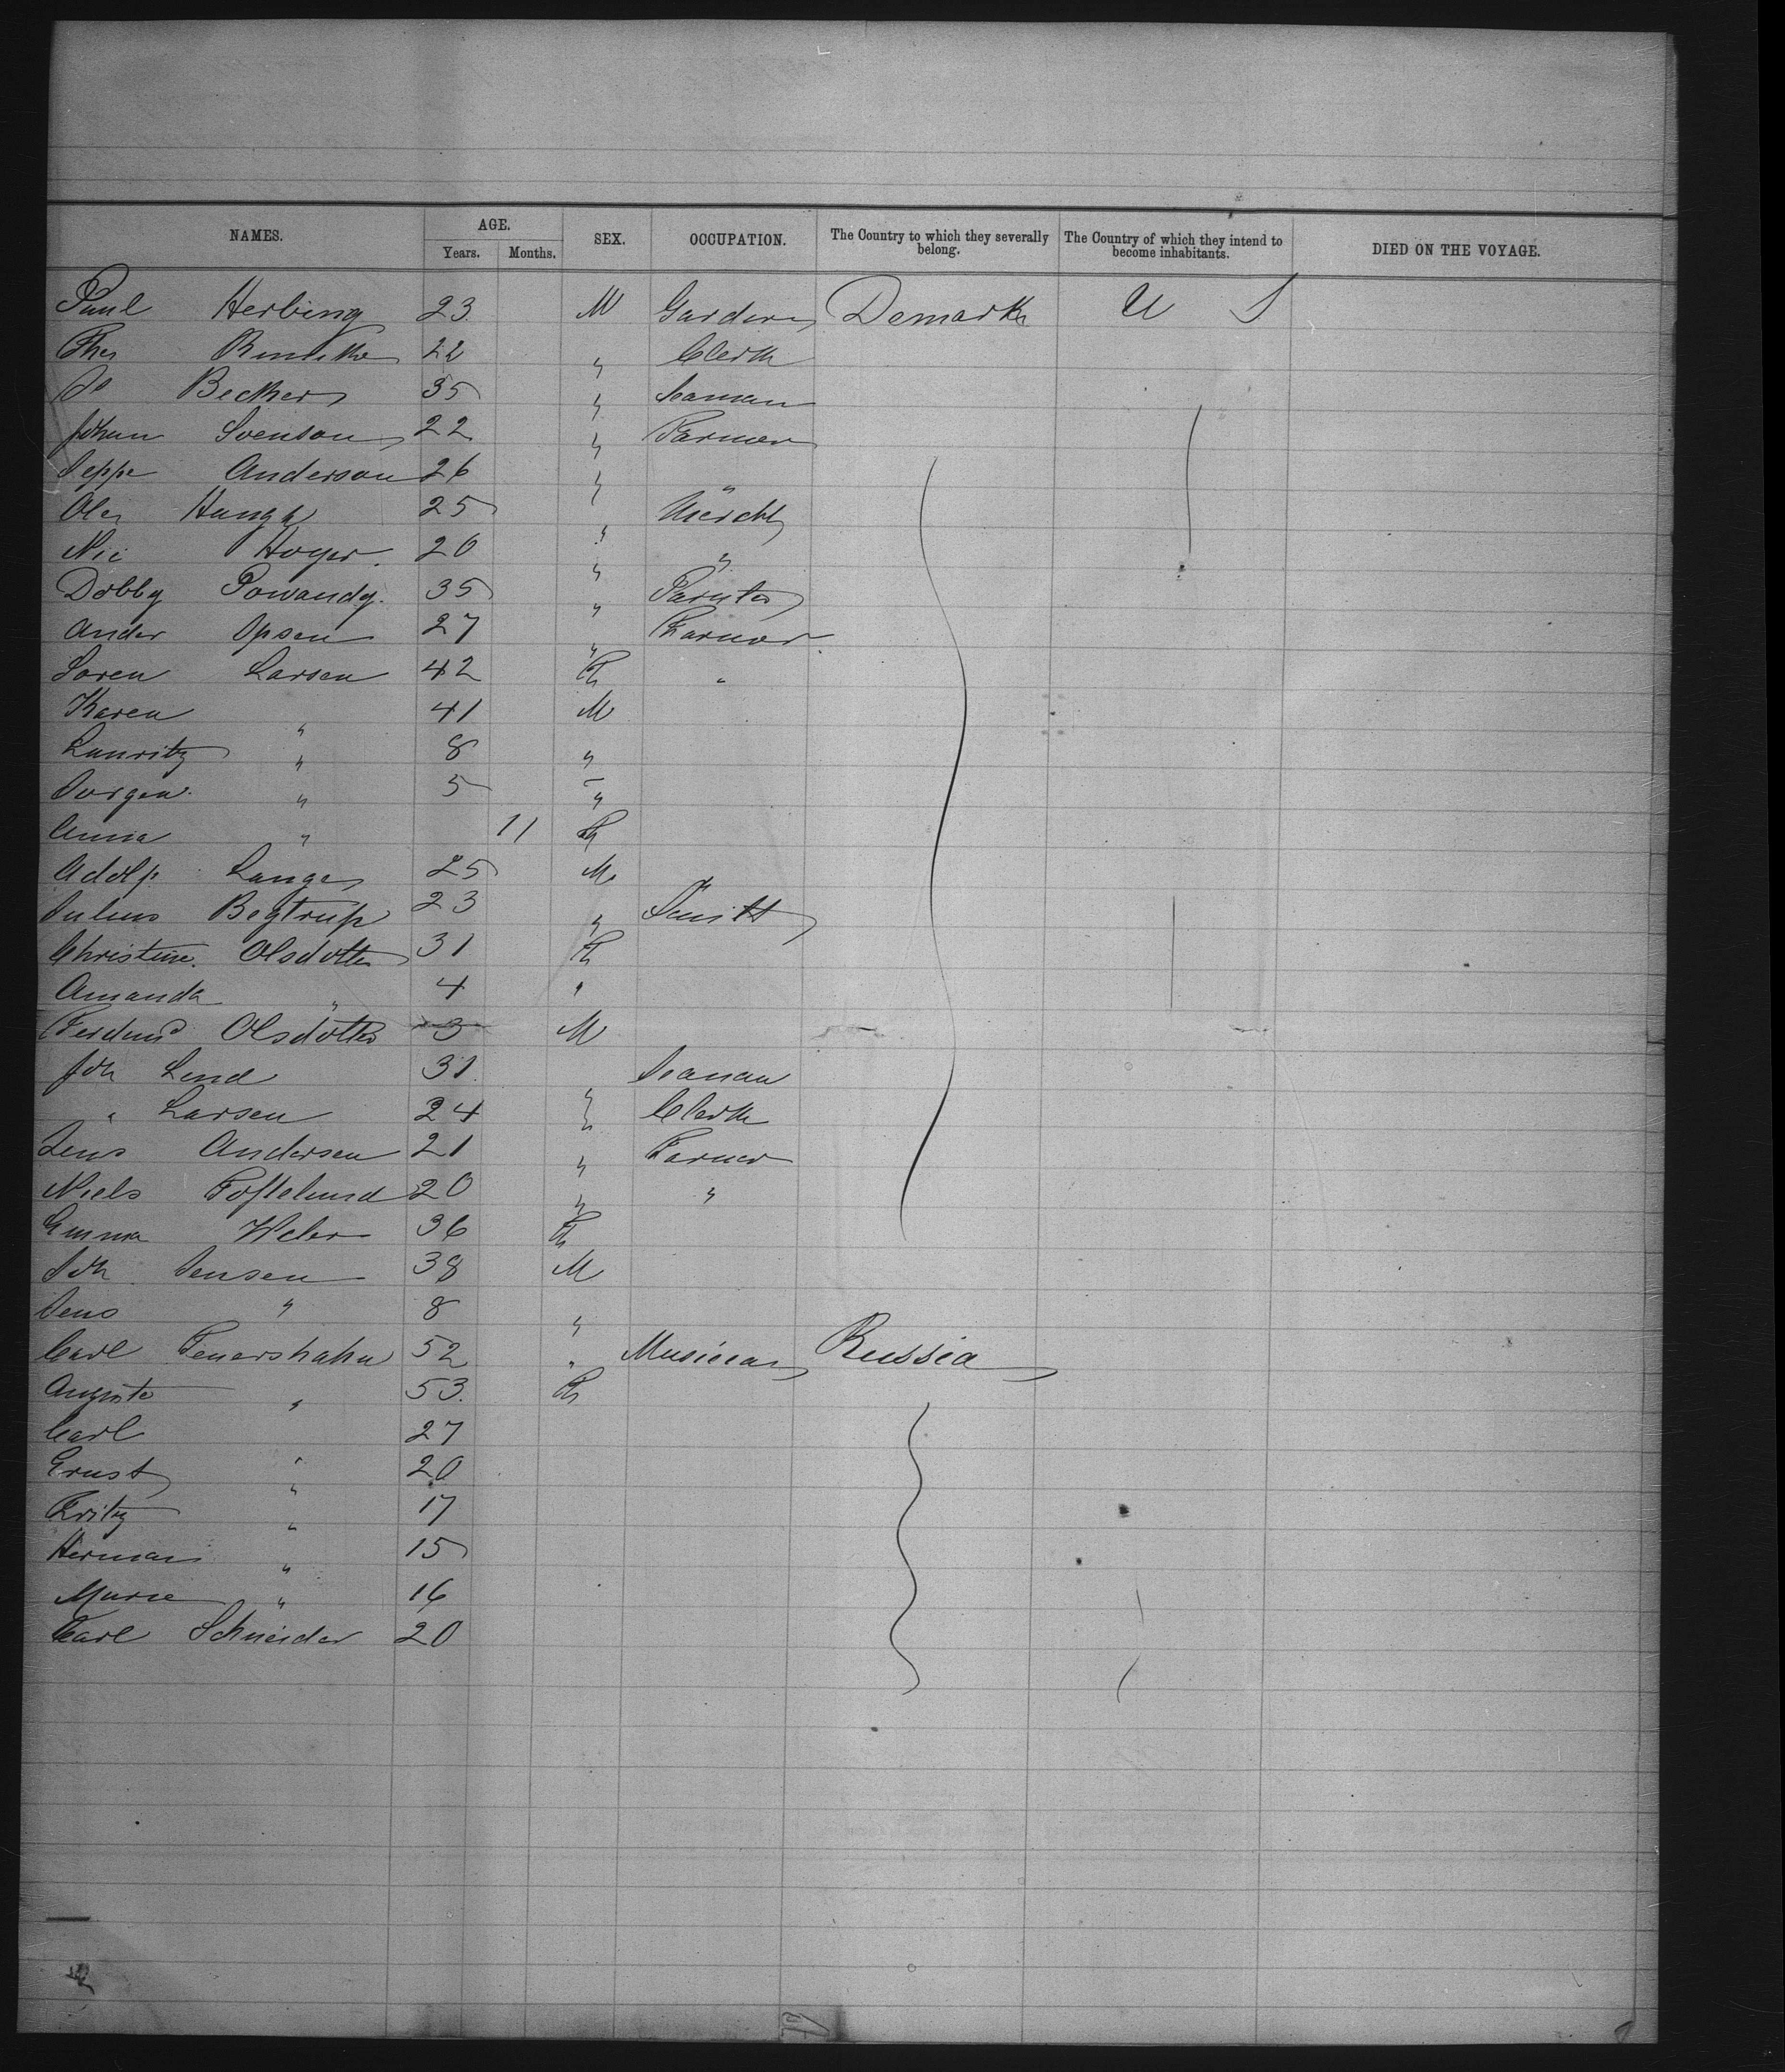 NAMES. AGE. SEX. OCCUPATION. The Country to which they severally belong. The Country of which they intend to become inhabitants. DIED ON THE VOYAGE.
Years. Months.
Paul Herbing 23 M Gardener Demark U S
22 " Clerk
Becker 35 " Seaman
Johan Svenson 22 " Farmer
Jeppe Anderson 26 " "
Ole 25 "
Nic Hoyer. 20 " "
Dobby Powandy. 35 " Painter
Ander Opsen 27 " Farmer
Soren Larsen 42 "
Karen " 41 M
Lauritz " 8 "
Jorgen " 5 "
Anna " 11
Adolf Lange 25 M
Julius Begtrup 23 " Smith
Christine. Olsdotter 31
Amanda " 4 "
Ferdind Olsdotter 3 M
Joh Lind 31 " Seaman
" Larsen 24 " Clerk
Jens Andersen 21 " Farmer
Niels Toftelund 20 " "
Emma Weber 36
Joh Jensen 38 M
Jens " 8 "
Carl Feuershahn 52 " Musician Russia
Auguste " 53
Carl " 27
Ernst " 20
Fritz " 17
Herman " 15
Marie " 16
Carl Schneider 20